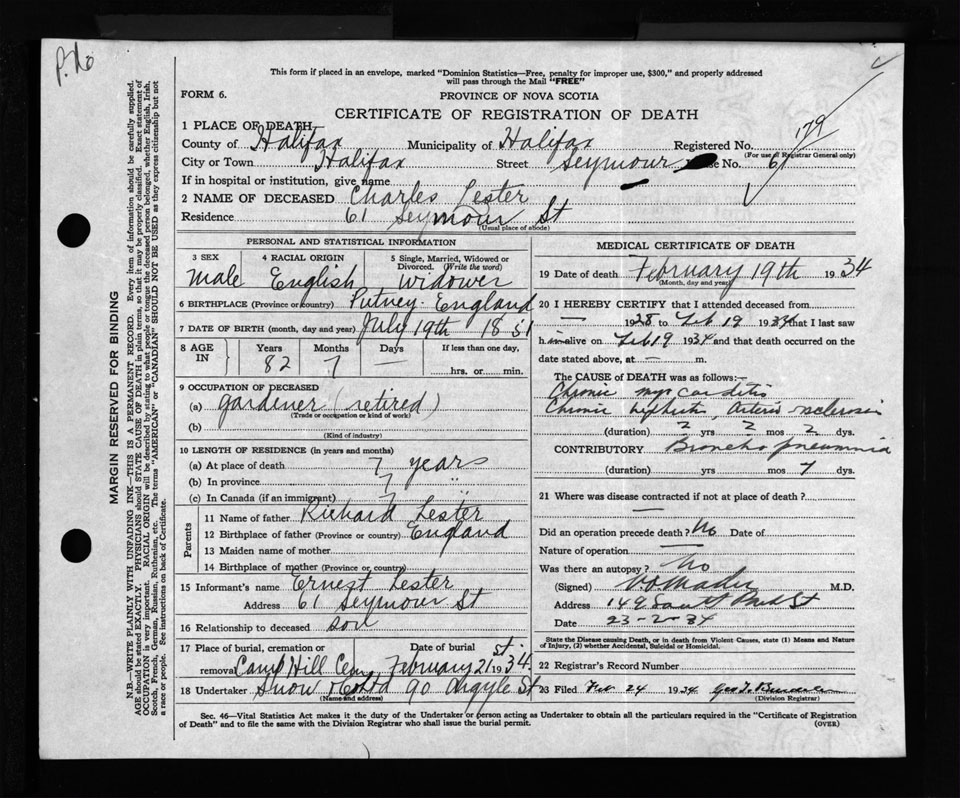 P. No
This form if placed in an envelope, marked "Dominion Statistics—Free, penalty for improper use, $300," and properly addressed
will pass through the Mail "FREE"
FORM 6.
PROVINCE OF NOVA SCOTIA
CERTIFICATE OF REGISTRATION OF DEATH
179
1 PLACE OF DEATH
County of Halifax Municipality of Halifax Registered No.
(For use of Registrar General only)
City or Town Halifax Street Seymour No. 61
If in hospital or institution, give name
2 NAME OF DECEASED Charles Lester
Residence 61 Seymour St
(Usual place of abode)
PERSONAL AND STATISTICAL INFORMATION
3 SEX 4 RACIAL ORIGIN 5 Single, Married, Widowed or
Divorced. (Write the word)
Male English Widower
6 BIRTHPLACE (Province or country) Putney. England
7 DATE OF BIRTH (month, day and year) July 19th 1851
8 AGE IN Years Months Days If less than one day,
82 7 — hrs. or min.
9 OCCUPATION OF DECEASED
(a) gardener (retired)
(Trade or occupation or kind of work)
(b)
(Kind of industry)
10 LENGTH OF RESIDENCE (in years and months)
(a) At place of death 7 years
(b) In province 7 "
(c) In Canada (if an immigrant) 7
Parents
11 Name of father Richard Lester
12 Birthplace of father (Province or country) England
13 Maiden name of mother
14 Birthplace of mother (Province or country)
15 Informant's name Ernest Lester
Address 61 Seymour St
16 Relationship to deceased son
17 Place of burial, cremation or Date of burial
removal Camp Hill Cem February 21st 1934
18 Undertaker Snow & Co Ltd 90 Argyle St
(Name and address)
MEDICAL CERTIFICATE OF DEATH
19 Date of death February 19th 1934
(Month, day and year)
20 I HEREBY CERTIFY that I attended deceased from
— 1928 to Feb 19 1934 that I last saw
him alive on Feb 19 1934 and that death occurred on the
date stated above, at — m.
The CAUSE of DEATH was as follows:—
Chronic myocarditis
Chronic nephritis, Arterio-sclerosis
(duration) 2 yrs 2 mos 2 dys.
CONTRIBUTORY Broncho pneumonia
(duration) yrs mos 7 dys.
21 Where was disease contracted if not at place of death?
—
Did an operation precede death? No Date of
Nature of operation —
Was there an autopsy? No
(Signed) M.D.
Address 149 St
Date 23-2-34
State the Disease causing Death, or in death from Violent Causes, state (1) Means and Nature
of Injury, (2) whether Accidental, Suicidal or Homicidal.
22 Registrar's Record Number
23 Filed Feb 24 1934 Geo.
(Division Registrar)
Sec. 46—Vital Statistics Act makes it the duty of the Undertaker or person acting as Undertaker to obtain all the particulars required in the "Certificate of Registration
of Death" and to file the same with the Division Registrar who shall issue the burial permit.
(OVER)
MARGIN RESERVED FOR BINDING
N.B.—WRITE PLAINLY WITH UNFADING INK—THIS IS A PERMANENT RECORD. Every item of information should be carefully supplied.
AGE should be stated EXACTLY. PHYSICIANS should STATE CAUSE OF DEATH in plain terms, so that it may be properly classified. Exact statement of
OCCUPATION is very important. RACIAL ORIGIN will be described by stating to what people or tongue the deceased person belonged, whether English, Irish,
Scotch, French, German, Russian, Ruthenian, etc. The terms "AMERICAN" or "CANADIAN" SHOULD NOT BE USED as they express citizenship but not
a race or people. See instructions on back of Certificate.